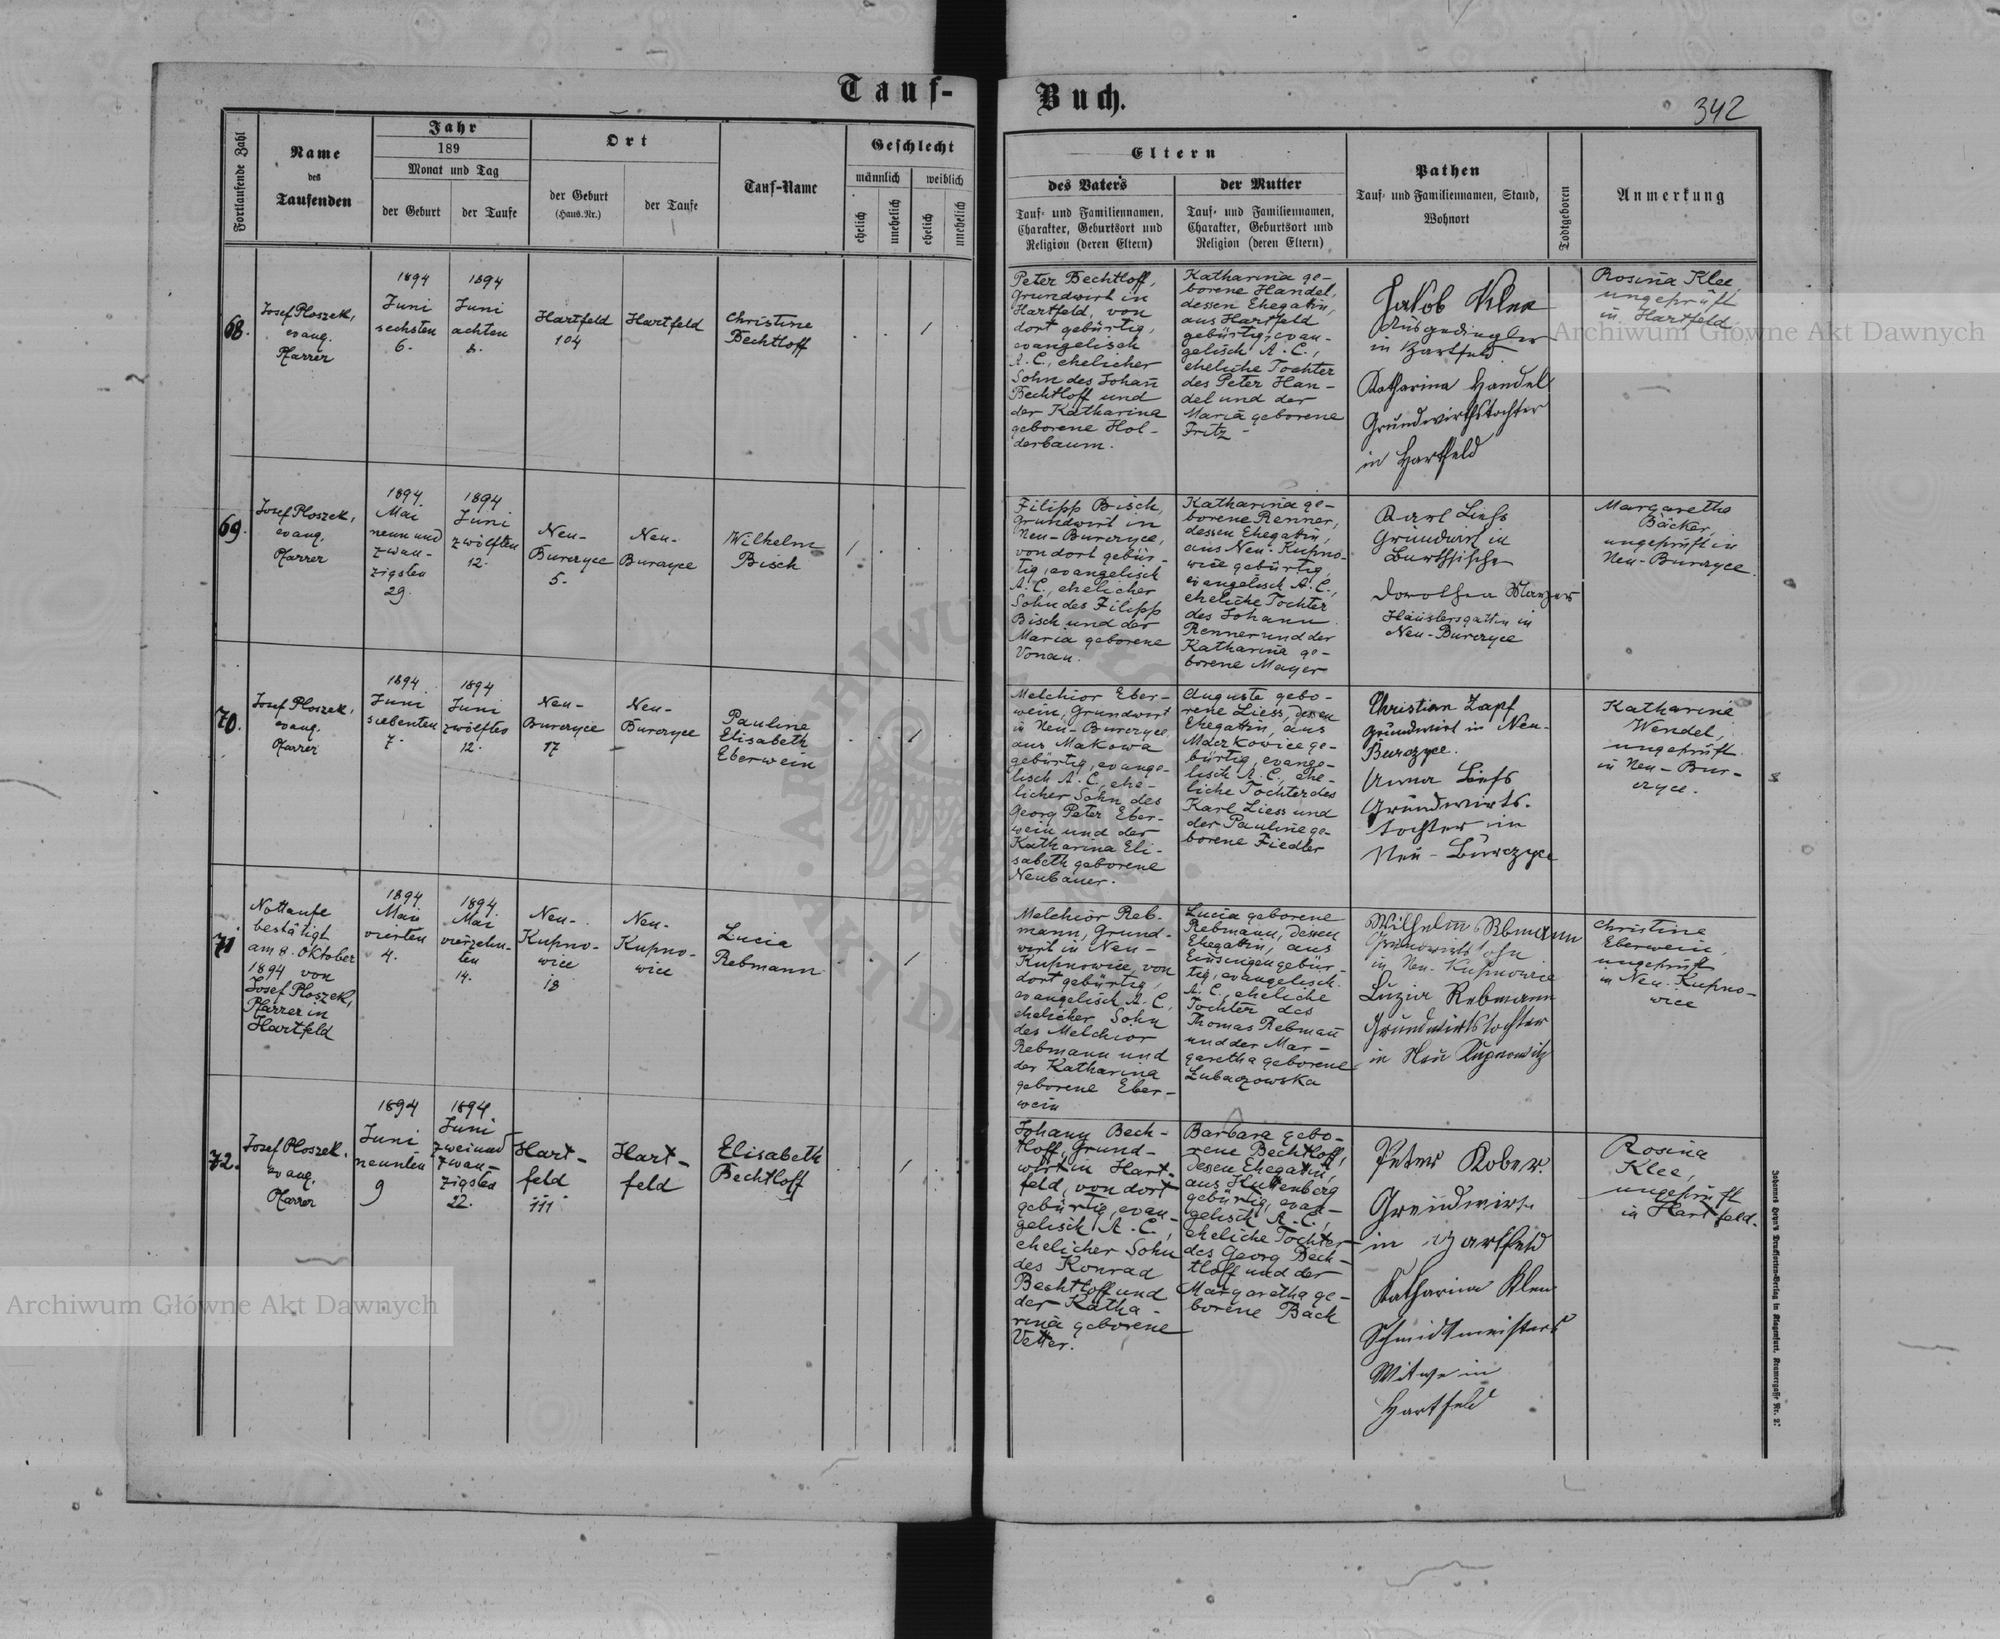 Tauf-
Buch.
342
Fortlaufende Zahl
Name
des
Taufenden
Jahr
189
Monat und Tag
der Geburt
der Taufe
Ort
der Geburt
(Haus-Nr.)
der Taufe
Tauf-Name
Geschlecht
männlich
weiblich
ehelich
unehelich
ehelich
unehelich
Eltern
des Vaters
Tauf- und Familiennamen,
Charakter, Geburtsort und
Religion (deren Eltern)
der Mutter
Tauf- und Familiennamen,
Charakter, Geburtsort und
Religion (deren Eltern)
Pathen
Tauf- und Familiennamen, Stand,
Wohnort
Todtgeboren
Anmerkung
68.
Josef Ploszek,
evang.
Pfarrer
1894
Juni
sechsten
6.
1894
Juni
achten
8.
Hartfeld
104
Hartfeld
Christine
Bechtloff
Peter Bechtloff,
Grundwirt in
Hartfeld, von
dort gebürtig,
evangelisch
A. C., ehelicher
Sohn des Johañ
Bechtloff und
der Katharina
geborene Hol-
derbaum.
Katharina ge-
borene Handel,
dessen Ehegatin,
aus Hartfeld
gebürtig, evan-
gelisch A. C.,
eheliche Tochter
des Peter Han-
del und der
Maria geborene
Fritz
Jakob Klee
Ausgedingler
in Hartfeld
Katharina Handel
Grundwirthstochter
in Hartfeld
Rosina Klee,
ungeprüft
in Hartfeld
69.
Josef Ploszek,
evang.
Pfarrer
1894
Mai
neun und
zwan-
zigsten
29.
1894
Juni
zwölften
12.
Neu-
Burczyce
5.
Neu-
Burczyce
Wilhelm
Bisch
Filipp Bisch,
Grundwirt in
Neu-Burczyce,
von dort gebür-
tig, evangelisch
A. C., ehelicher
Sohn des Filipp
Bisch und der
Maria geborene
Vonau.
Katharina ge-
borene Renner,
dessen Ehegatin,
aus Neu-Kupno-
wice gebürtig,
evangelisch A. C.,
eheliche Tochter
des Johann
Renner und der
Katharina ge-
borene Mayer
Karl Liess
Grundwirt in
Dorothea
Häuslersgattin in
Neu-Burczyce
Margaretha
Bäcker,
ungeprüft in
Neu-Burczyce.
70.
Josef Ploszek,
evang.
Pfarrer
1894
Juni
siebenten
7.
1894
Juni
zwölften
12.
Neu-
Burczyce
17
Neu-
Burczyce
Pauline
Elisabeth
Eberwein
Melchior Eber-
wein, Grundwirt
in Neu-Burczyce,
aus Makowa
gebürtig, evange-
lisch A. C., ehe-
licher Sohn des
Georg Peter Eber-
wein und der
Katharina Eli-
sabeth geborene
Neubauer.
Auguste gebo-
rene Liess, dessen
Ehegattin, aus
Moczkovice ge-
bürtig, evange-
lisch A. C., ehe-
liche Tochter des
Karl Liess und
der Pauline ge-
borene Fiedler
Christian Zapf
Grundwirt in Neu-
Burczyce.
Anna Liess
Grundwirts-
tochter in
Neu-Burczyce
Katharine
Wendel,
ungeprüft
in Neu-Bur-
czyce.
71
Nottaufe
bestätigt
am 8. Oktober
1894 von
Josef Ploszek,
Pfarrer in
Hartfeld
1894
Mai
vierten
4.
1894
Mai
vierzehn-
ten
14.
Neu-
Kupno-
wice
18
Neu-
Kupno-
wice
Lucia
Rebmann
Melchior Reb-
mann, Grund-
wirt in Neu-
Kupnowice, von
dort gebürtig,
evangelisch A. C.,
ehelicher Sohn
des Melchior
Rebmann und
der Katharina
geborene Eber-
wein
Lucia geborene
Rebmann, dessen
Ehegattin, aus
Einsingen gebür-
tig, evangelisch
A. C., eheliche
Tochter des
Thomas Rebmañ
und der Mar-
garetha geborene
Lubaczowska
Wilhelm Rbmann
Grundwirtssohn
in Neu-Kupnowice
Luzia Rebmann
Grundwirtstochter
in Neu Kupnowitz
Christine
Eberwein,
ungeprüft
in Neu-Kupno-
wice
72.
Josef Ploszek,
evang.
Pfarrer
1894
Juni
neunten
9
1894
Juni
zweiund
zwan-
zigsten
22.
Hart-
feld
111
Hart-
feld
Elisabeth
Bechtloff
Johann Bech-
tloff, Grund-
wirt in Hart-
feld, von dort
gebürtig, evan-
gelisch A. C.,
ehelicher Sohn
des Konrad
Bechtloff und
der Katha-
rina geborene
Vetter.
Barbara gebo-
rene Bechtloff,
dessen Ehegatin,
aus Kuttenberg
gebürtig, evan-
gelisch A. C.,
eheliche Tochter
des Georg Bech-
tloff und der
Margaretha ge-
borene Bäck
Peter Kober
Grundwirt
in Hartfeld
Katharina Klee
Schmidtmeisters
Witwe in
Hartfeld
Rosina
Klee,
ungeprüft
in Hartfeld.
Archiwum Główne Akt Dawnych
Archiwum Główne Akt Dawnych